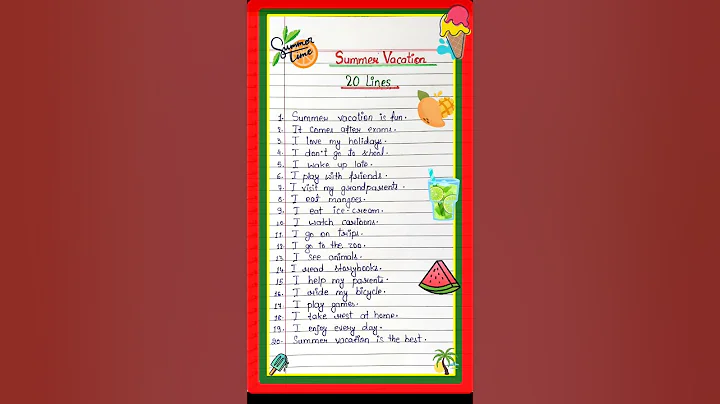 Summer Time
Summer Vacation
20 Lines
1. Summer vacation is fun.
2. It comes after exams.
3. I love my holidays.
4. I don't go to school.
5. I wake up late.
6. I play with friends.
7. I visit my grandparents.
8. I eat mangoes.
9. I eat ice-cream.
10. I watch cartoons.
11. I go on trips.
12. I go to the zoo.
13. I see animals.
14. I read storybooks.
15. I help my parents.
16. I ride my bicycle.
17. I play games.
18. I take rest at home.
19. I enjoy every day.
20. Summer vacation is the best.